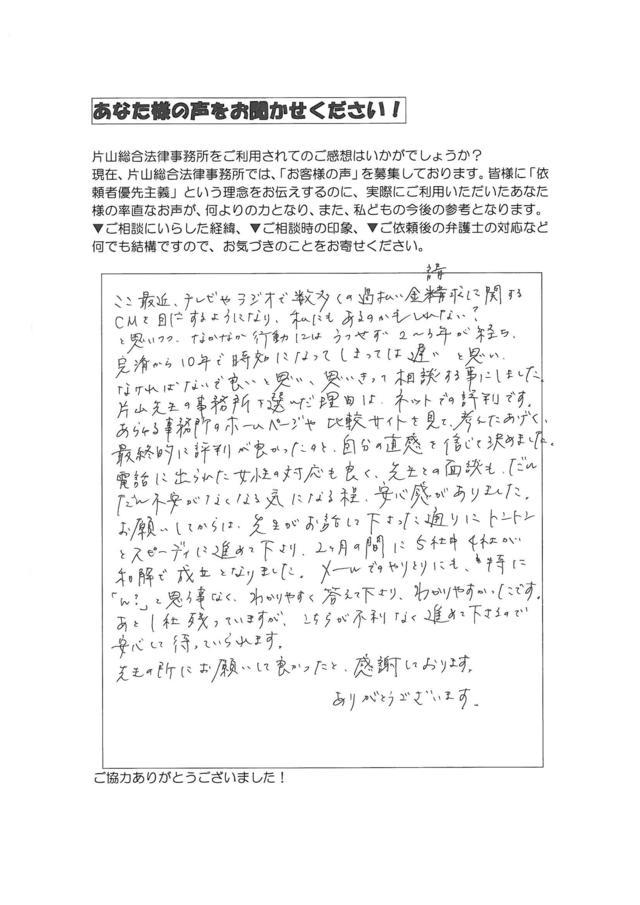 あなた様の声をお聞かせください！
片山総合法律事務所をご利用されてのご感想はいかがでしょうか？
現在、片山総合法律事務所では、「お客様の声」を募集しております。皆様に「依
頼者優先主義」という理念をお伝えするのに、実際にご利用いただいたあなた
様の率直なお声が、何よりの力となり、また、私どもの今後の参考となります。
▼ご相談にいらした経緯、▼ご相談時の印象、▼ご依頼後の弁護士の対応など
何でも結構ですので、お気づきのことをお寄せください。
ここ最近、テレビやラジオで数多くの過払い金請求に関する
CMを目にするようになり、私にもあるのかもしれない？
と思いつつ、なかなか行動にはうつせず2〜3年が経ち、
完済から10年で時効になってしまっては遅いと思い、
なければないで良いと思い、思いきって相談する事にしました。
片山先生の事務所を選んだ理由は、ネットでの評判です。
あらゆる事務所のホームページや比較サイトを見て、考えたあげく、
最終的に評判が良かったのと、自分の直感を信じて決めました。
電話に出られた女性の対応も良く、先生との面談も、だん
だん不安がなくなる気になる程、安心感がありました。
お願いしてからは、先生がお話して下さった通りにトントン
とスピーディに進めて下さり、2ヶ月の間に5社中4社が
和解で成立となりました。メールでのやりとりにも、特に
「ん？」と思う事なく、わかりやすく答えて下さり、わかりやすかったです。
あと1社残っていますが、こちらが不利なく進めて下さるので
安心して待っていられます。
先生の所にお願いして良かったと、感謝しております。
ありがとうございます。
ご協力ありがとうございました！